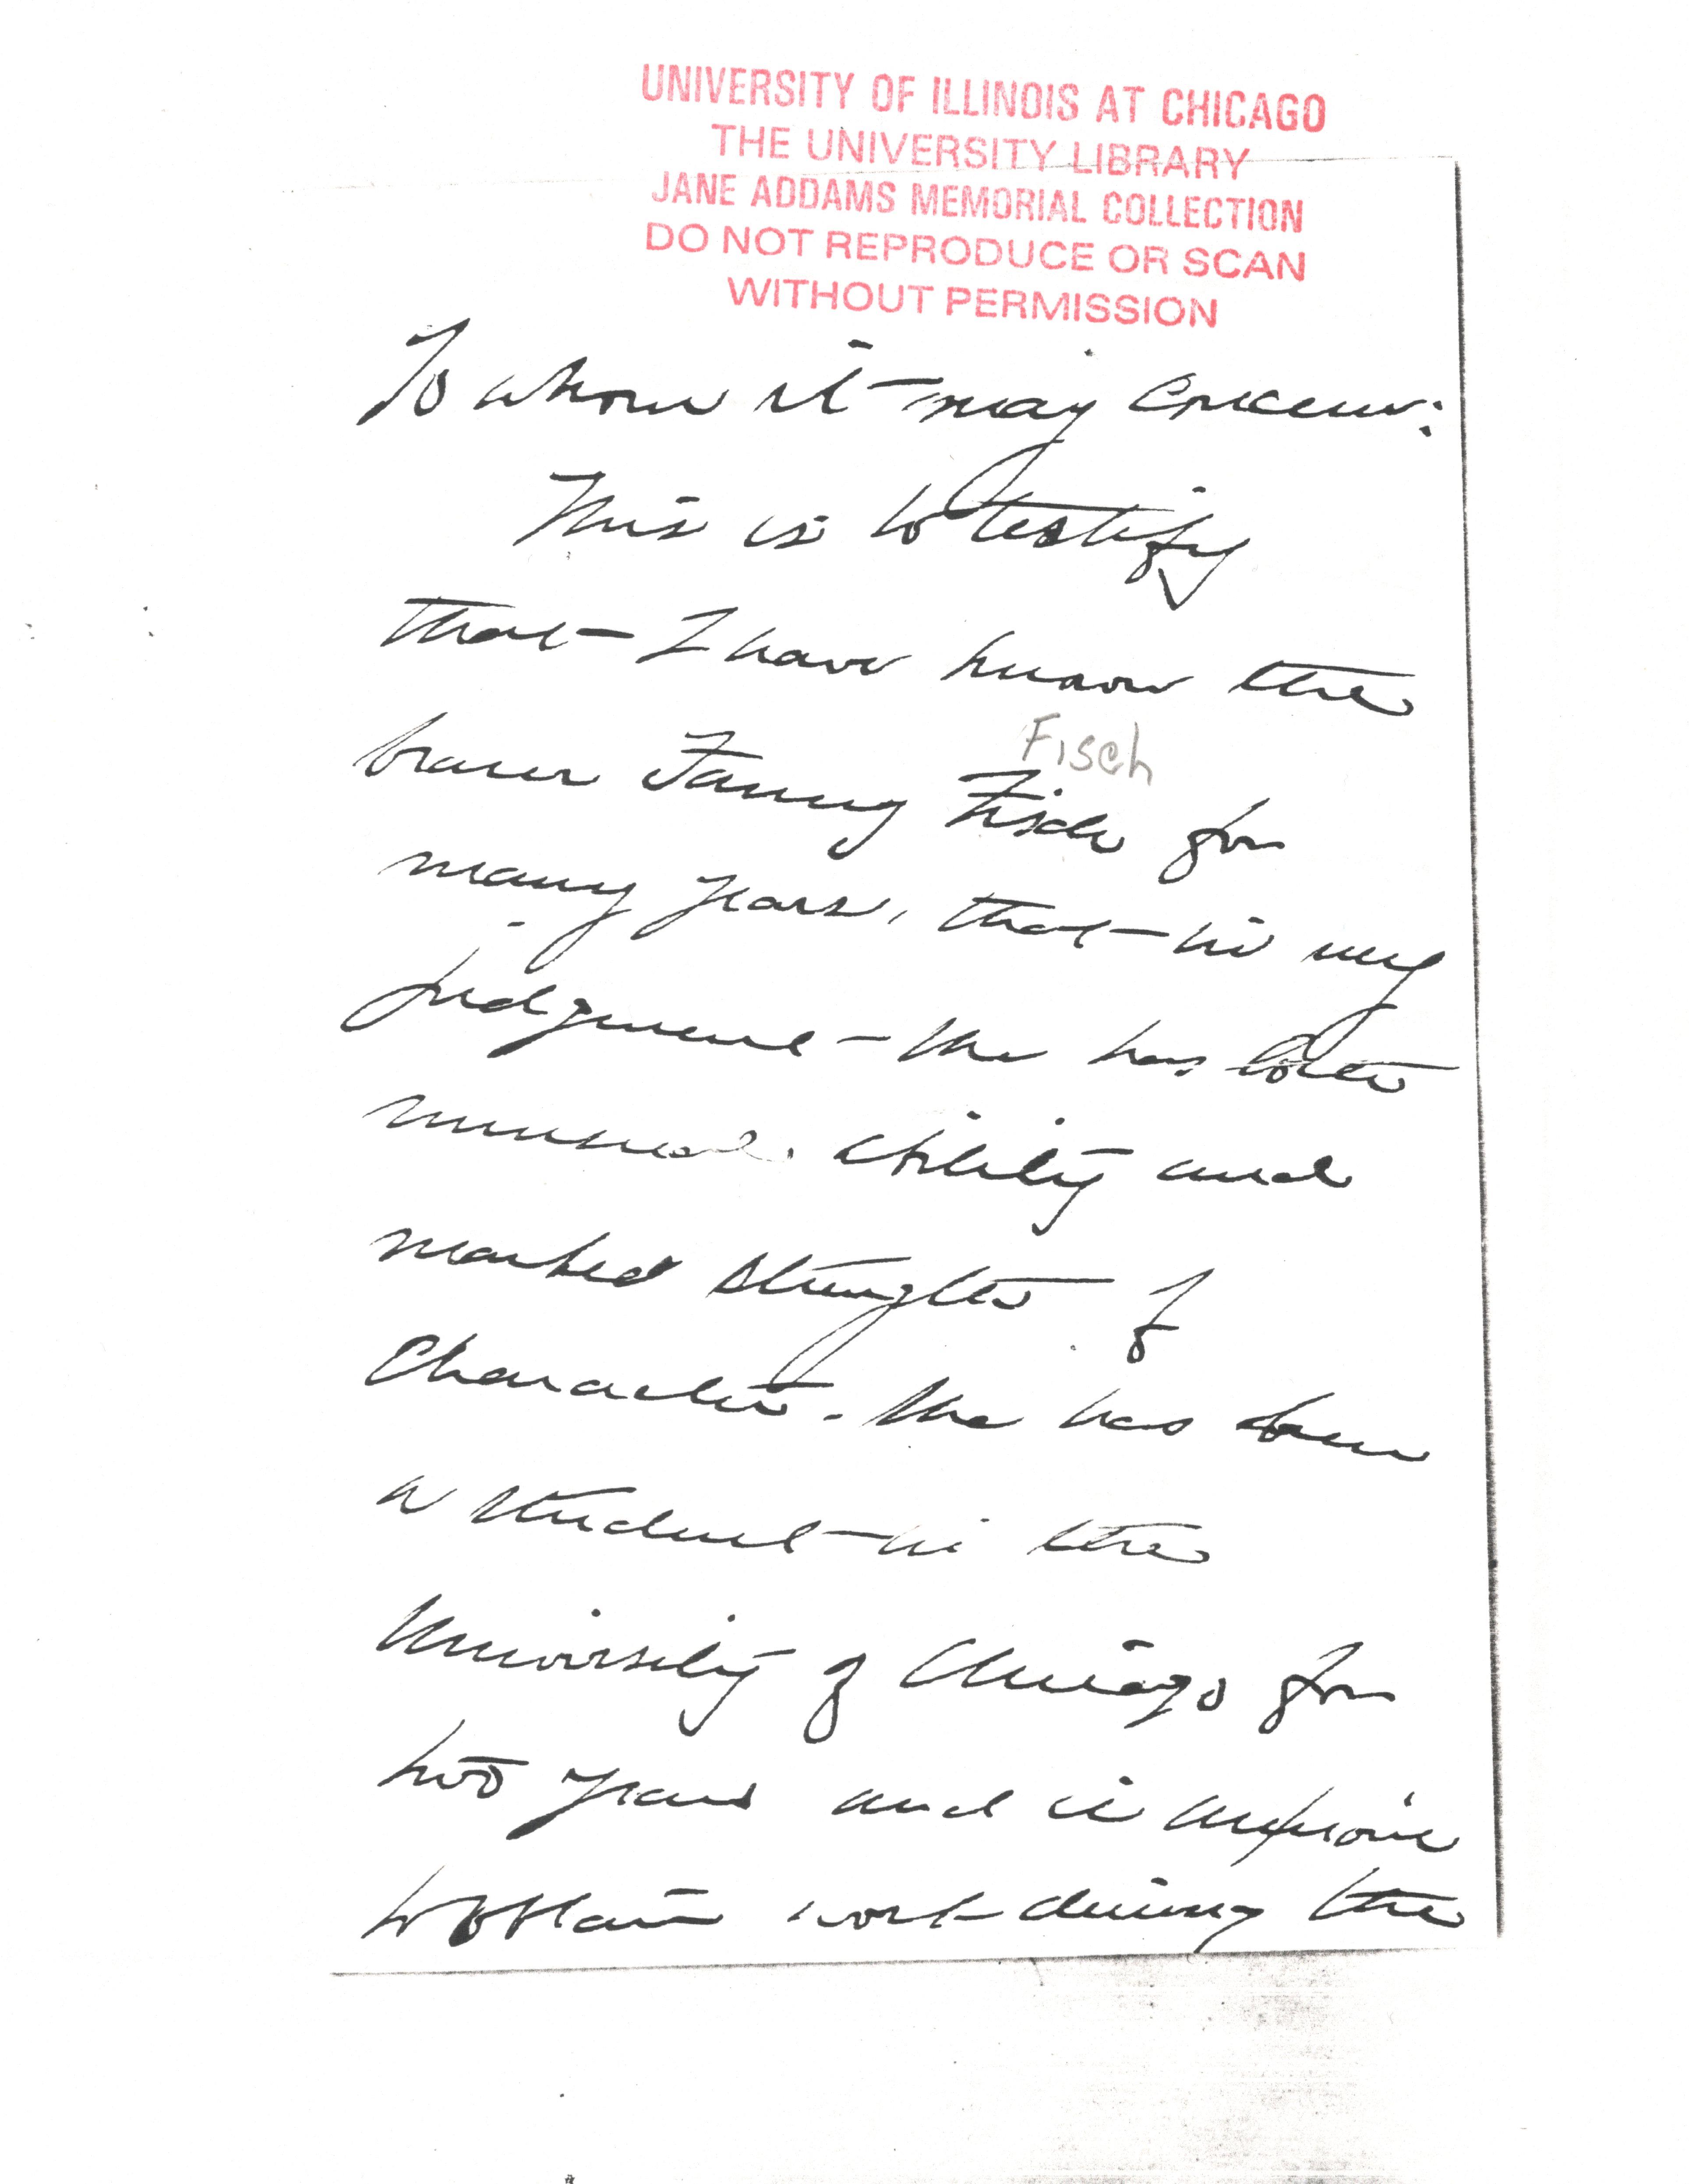 UNIVERSITY OF ILLINOIS AT CHICAGO
THE UNIVERSITY LIBRARY
JANE ADDAMS MEMORIAL COLLECTION
DO NOT REPRODUCE OR SCAN
WITHOUT PERMISSION
To whom it may concern:
This is to testify
that I have known the
bearer Fanny Fisch for
Fisch
many years, that in my
judgment she has both
unusual ability and
marked strength of
character. She has been
a student in the
University of Chicago for
two years and is anxious
to obtain work during the